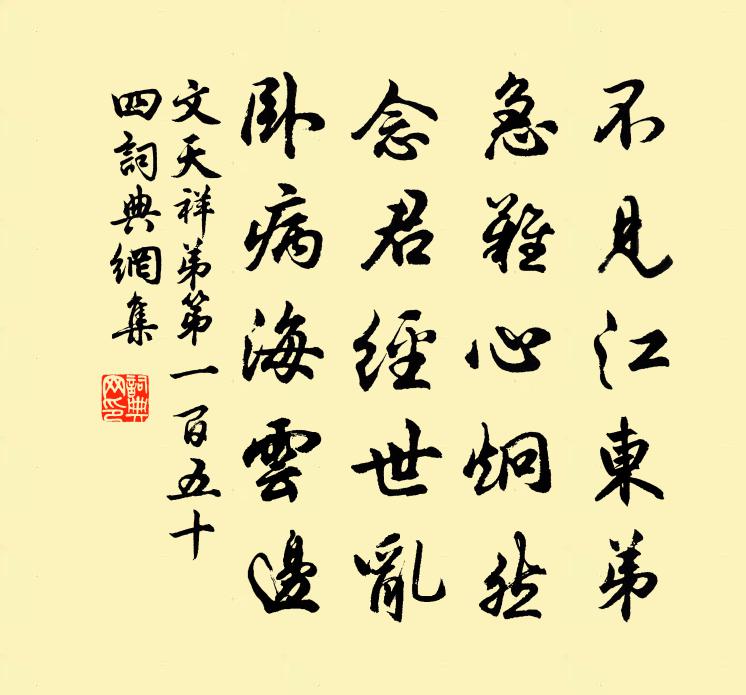 不見江東弟
急難心炯然
念君經世亂
臥病海雲邊
文天祥弟第一百五十
四詞典網集
詞典網印